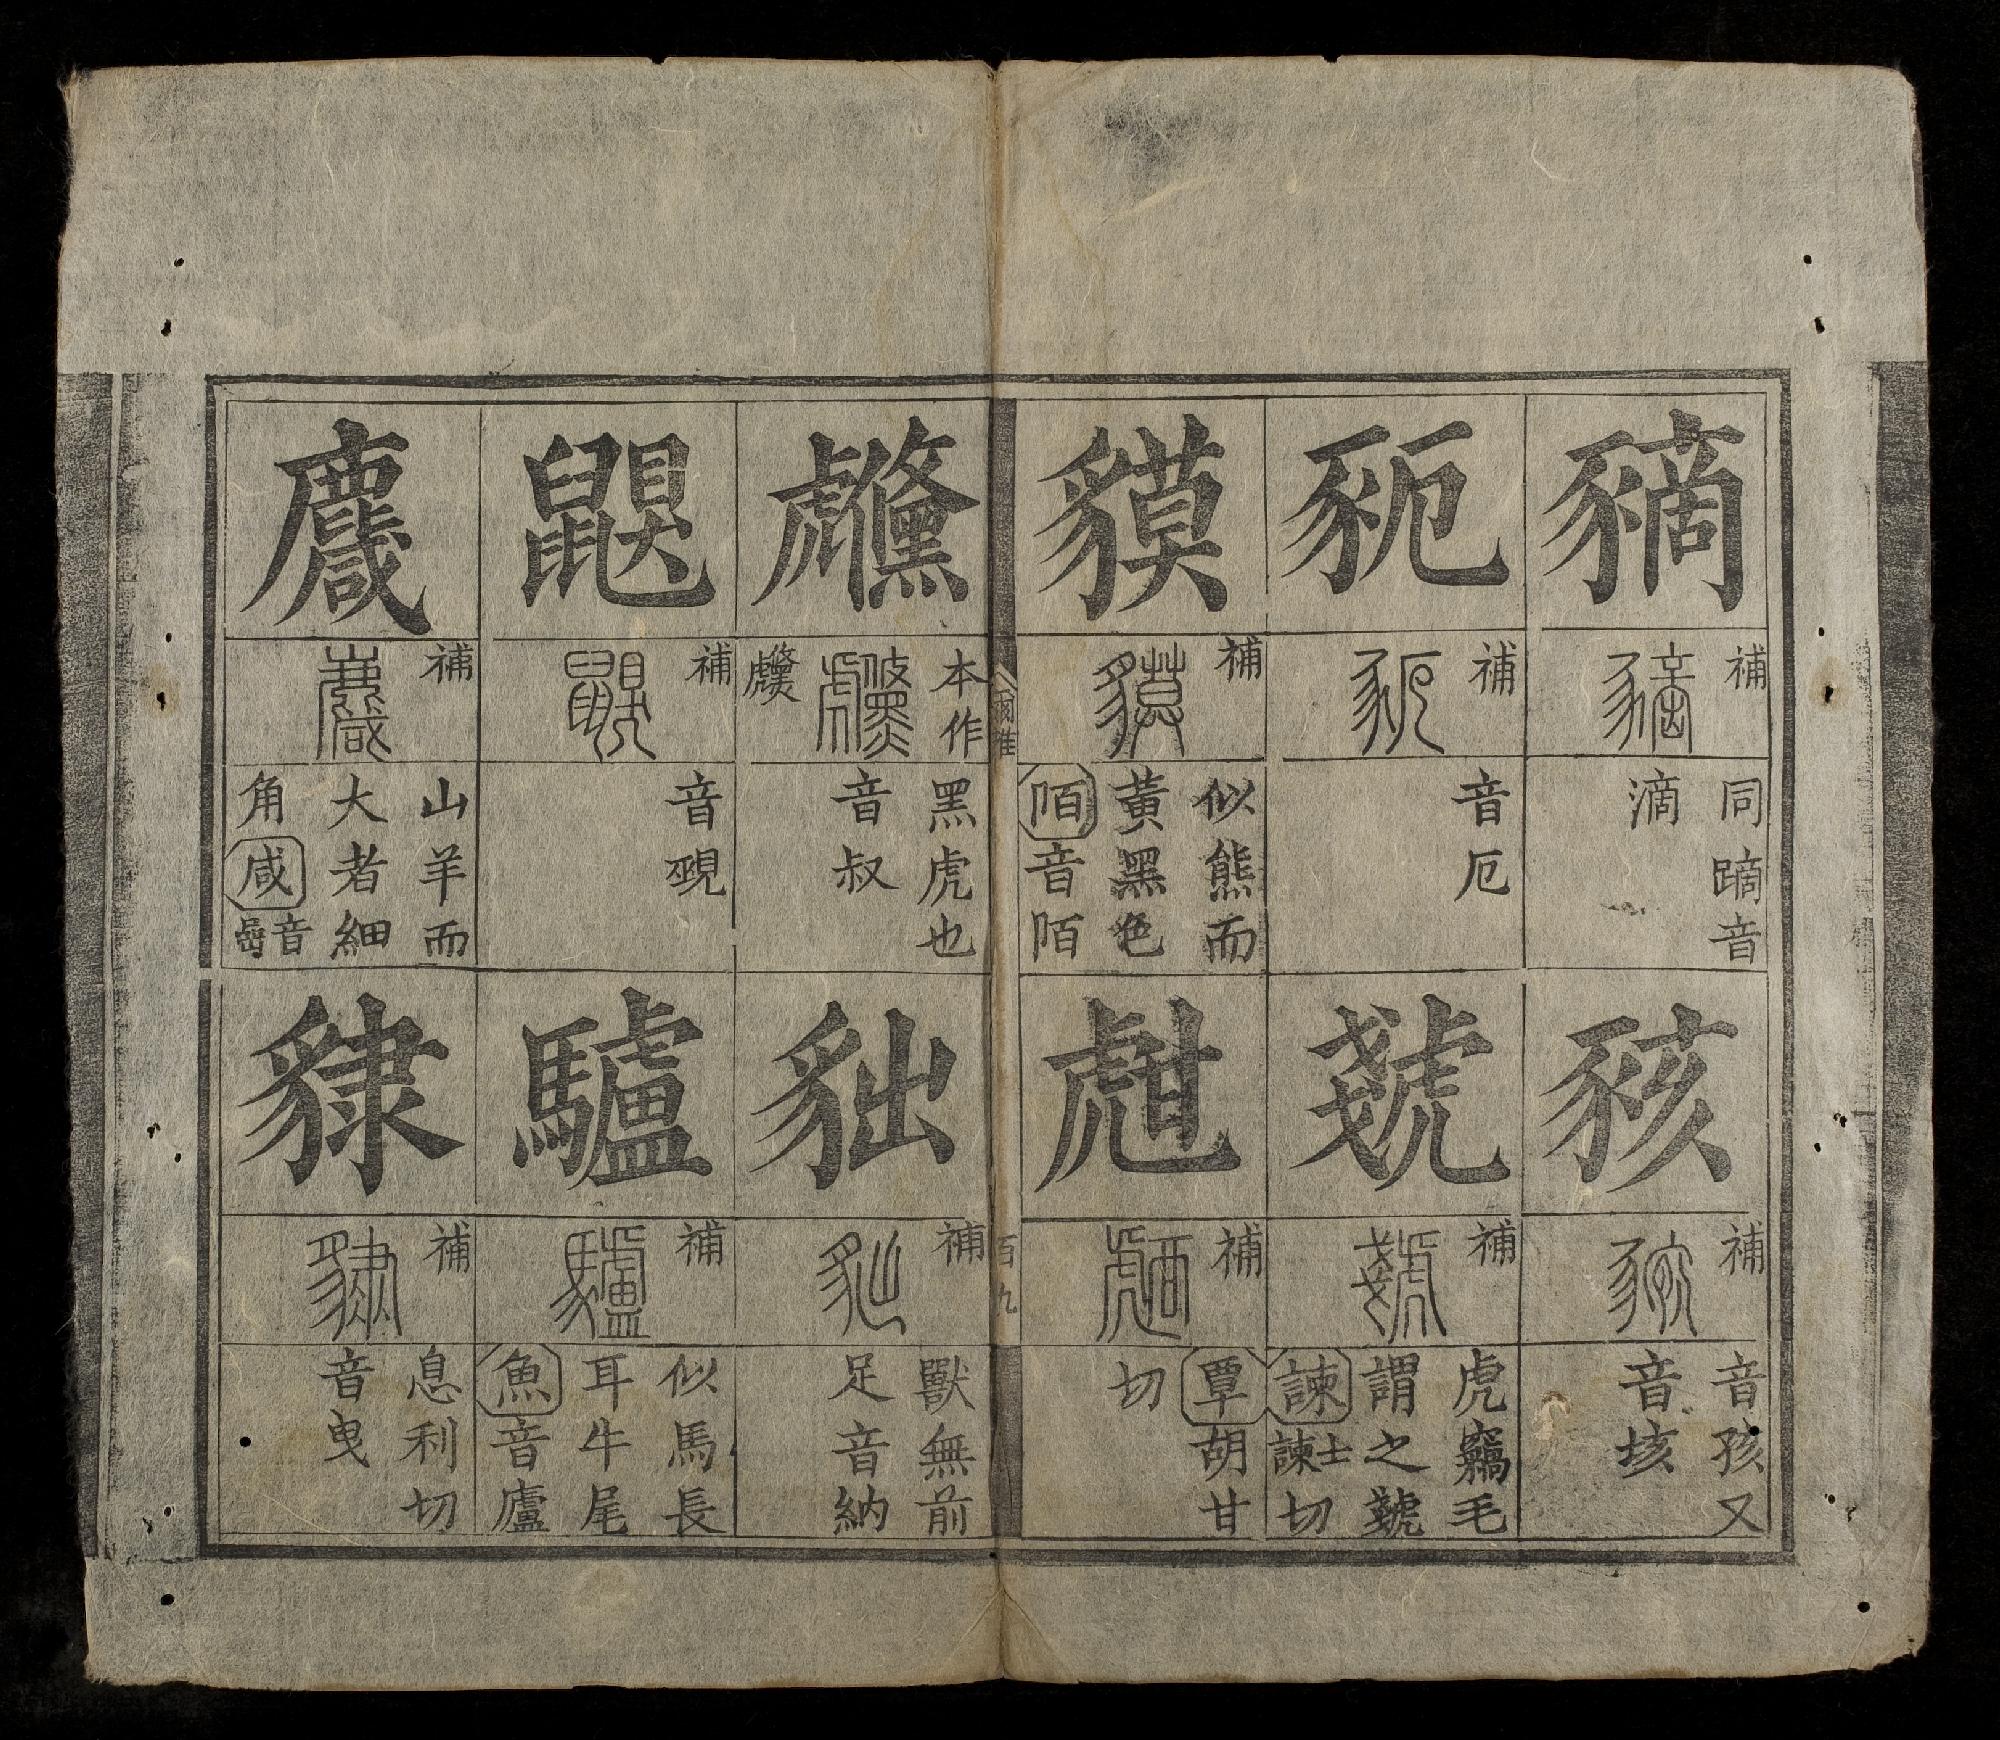 豴
補
同蹢音
滴
豥
補
音孩又
音垓
豟
補
音厄
虦
補
虎竊毛
謂之虦
諫士諫切
貘
補
似熊而
黃黑色
陌音陌
甝
補
覃胡甘
切
爾雅
百九
虪
本作
黑虎也
音叔
貀
補
獸無前
足音納
鼳
補
音覡
驢
補
似馬長
耳牛尾
魚音廬
麙
補
山羊而
大者細
角咸音喦
貄
補
息利切
音曳